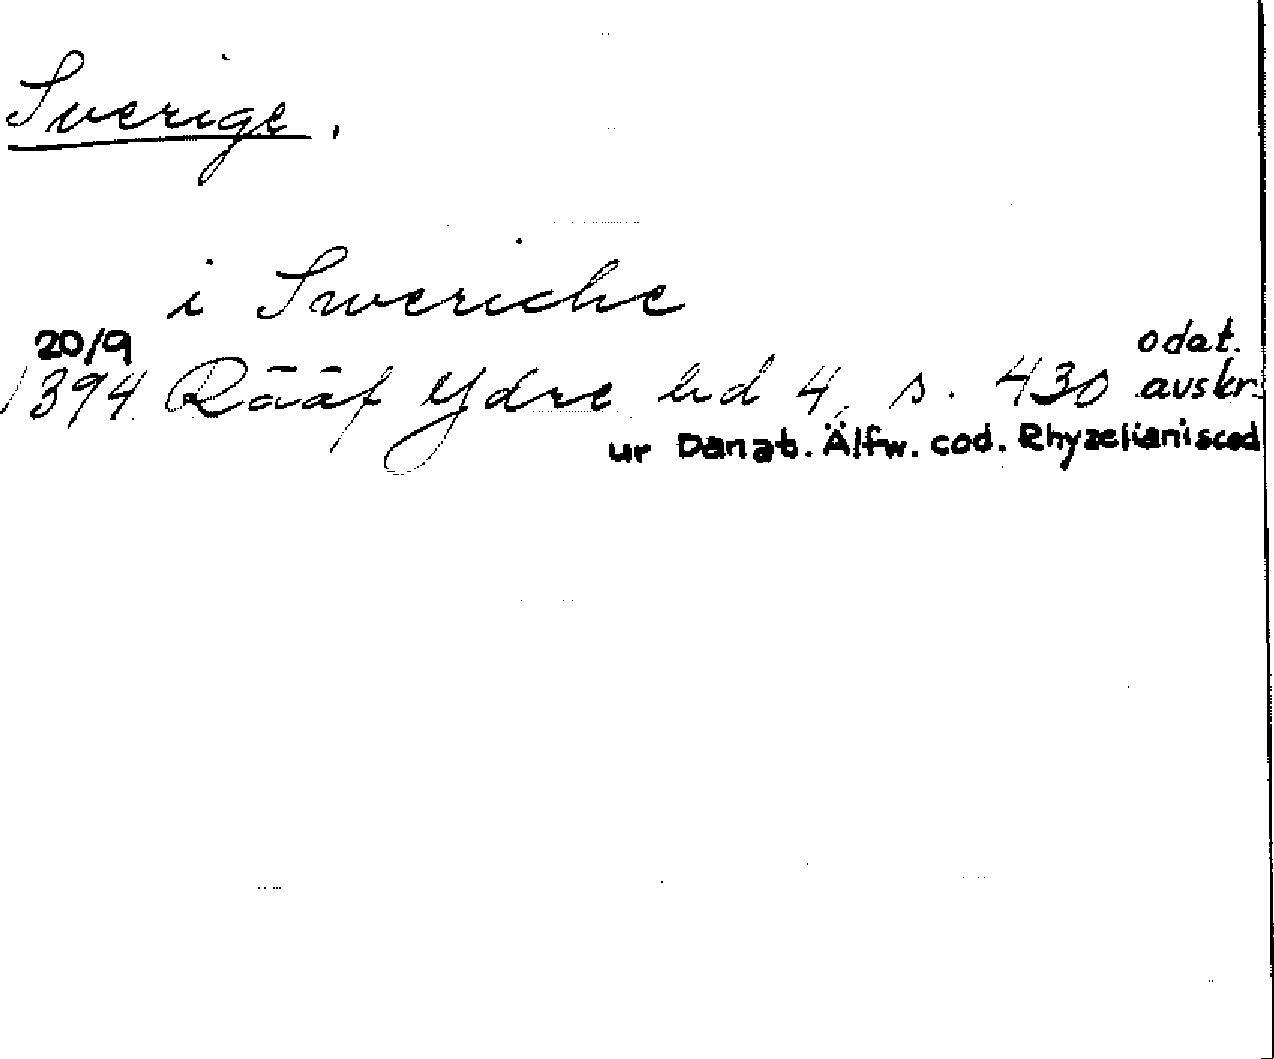 Sverige.
i Swericke
20/9 odat.
1394 Rääf Ydre bd 4, s. 430 avskr.
ur Danat. Älfw. cod. Rhyzelianiscod